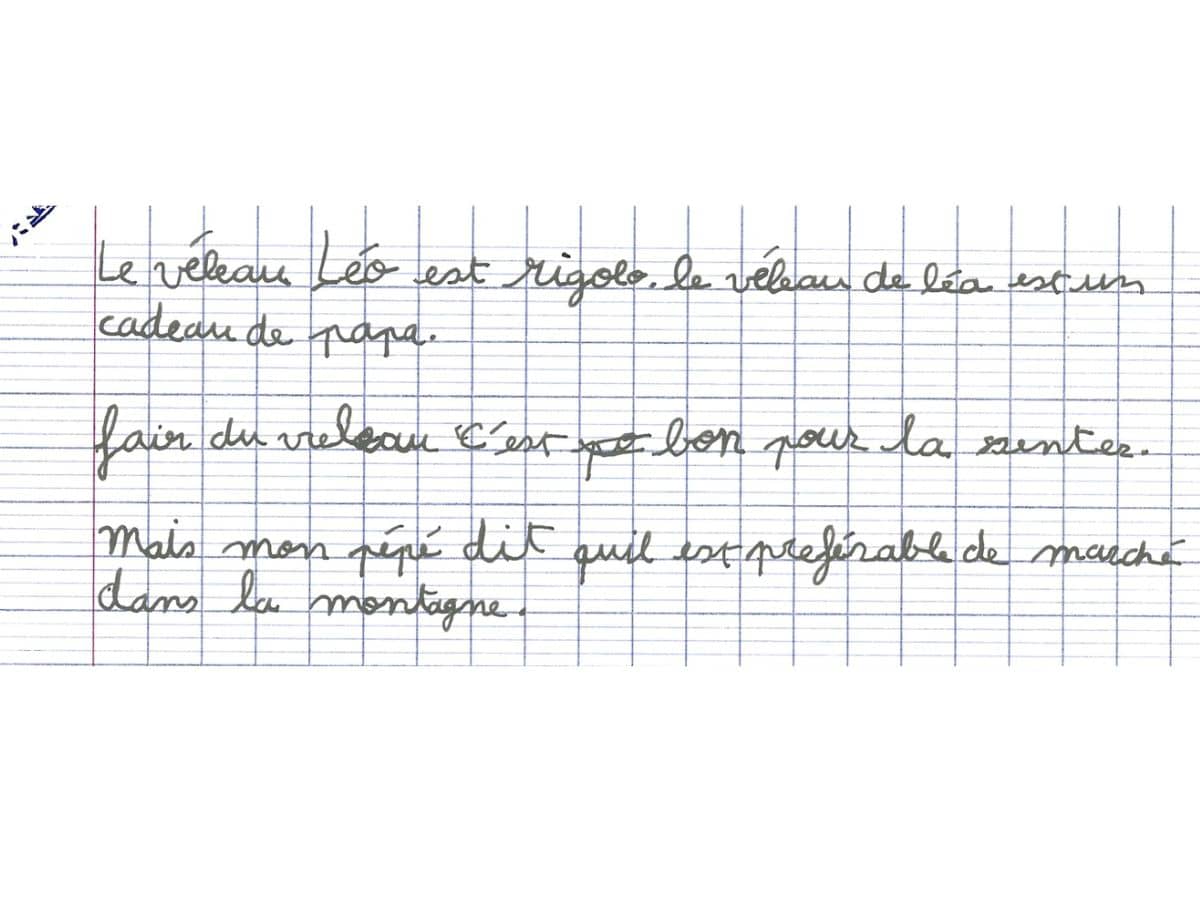 Le véleau Léo est rigolo. le véleau de léa est un
cadeau de papa.
fair du veleau c'est bon pour la senter.
Mais mon pépé dit quil est preférable de marché
dans la montagne.